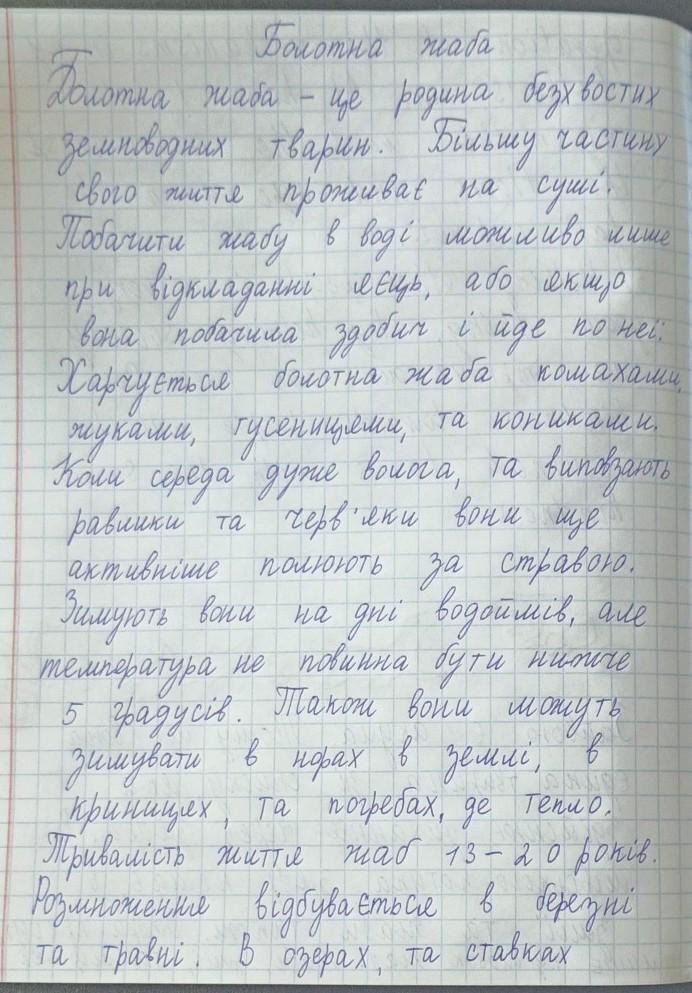 Болотна жаба
Болотна жаба – це родина безхвостих
земноводних тварин. Більшу частину
свого життя проживає на суші.
Побачити жабу в воді можливо лише
при відкладанні яєць, або якщо
вона побачила здобич і йде по неї.
Харчується болотна жаба комахами,
жуками, гусеницями, та кониками.
Коли середа дуже волога, та виповзають
равлики та черв'яки вони ще
активніше полюють за стравою.
Зимують вони на дні водоймів, але
температура не повинна бути нижче
5 градусів. Також вони можуть
зимувати в норах в землі, в
криницях, та погребах, де тепло.
Тривалість життя жаб 13–20 років.
Розмноження відбувається в березні
та травні. В озерах, та ставках